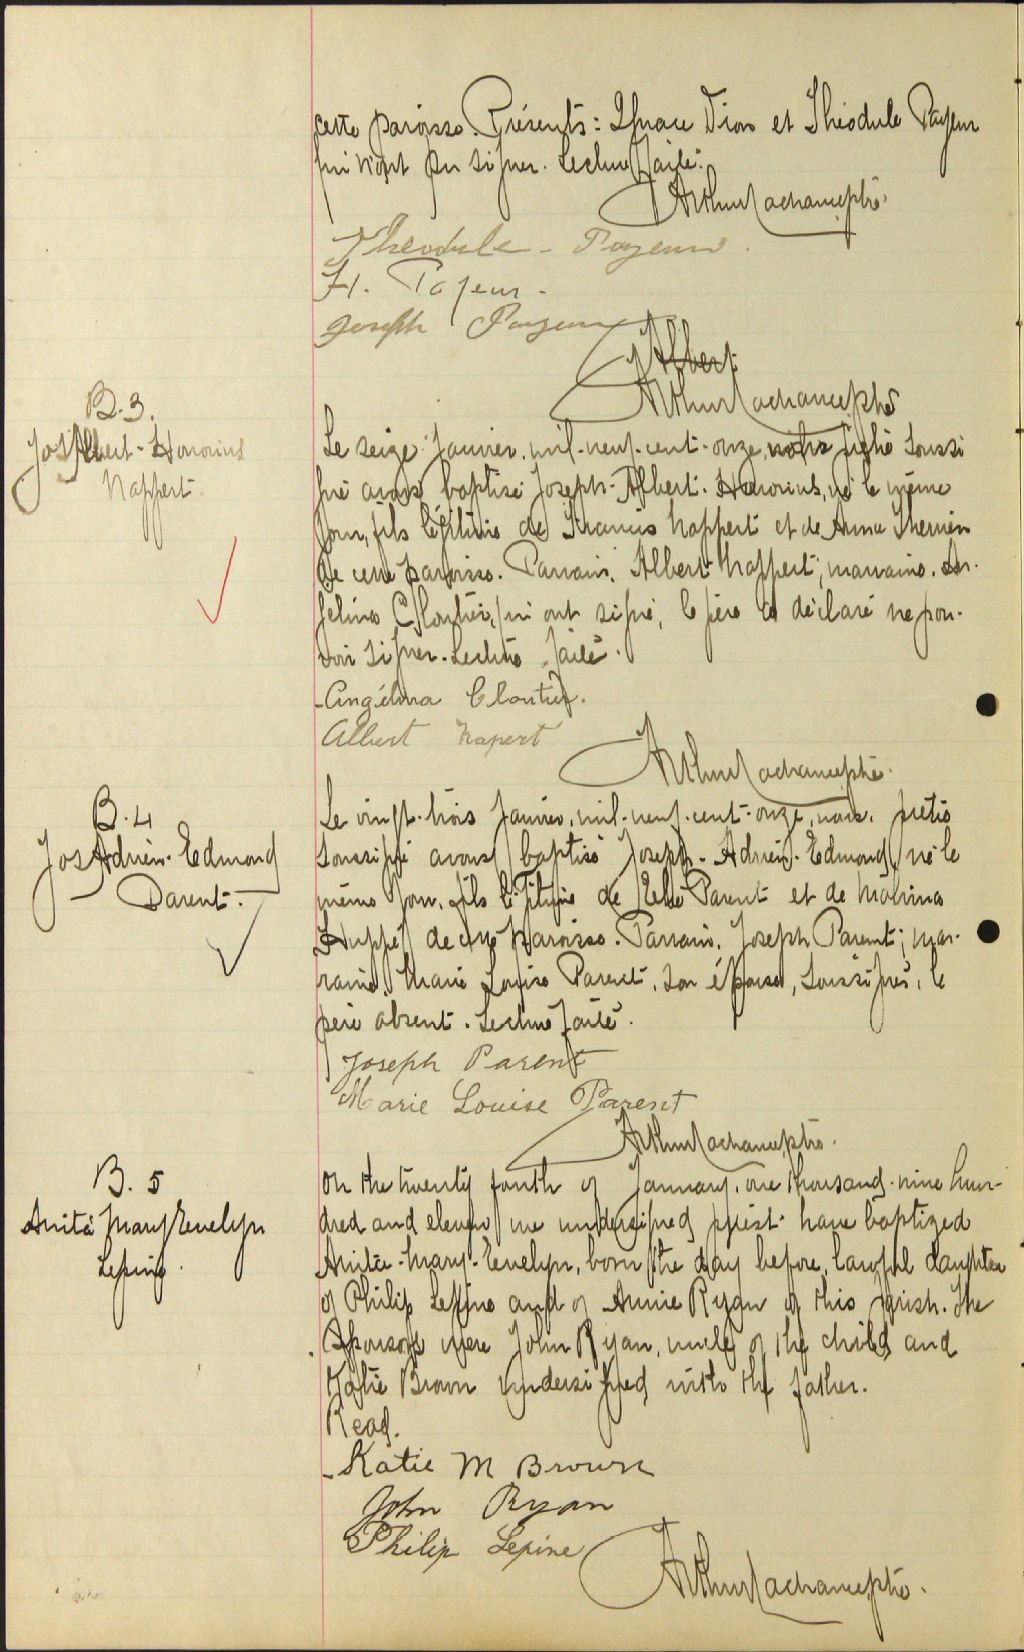 cette paroisse. Présents: Ignace Dion et Théodule Payeur
qui n'ont pu signer. Lecture faite.
Arthur Lachance ptre
Théodule Payeur
H. Payeur
Joseph Payeur
Albert
Arthur Lachance ptre
B. 3.
Jos Albert-Honorius
Nappert.
Le seize Janvier, mil-neuf-cent-onze, nous prêtre soussi
gné avons baptisé Joseph-Albert-Honorius, né le même
jour, fils légitime de Francis Nappert et de Anna Therrien
de cette paroisse. Parrain, Albert Nappert; marraine, An-
gelina Cloutier, qui ont signé, le père a déclaré ne pou-
voir signer. Lecture faite.
Angélina Cloutier.
Albert Napert
Arthur Lachance ptre.
B. 4
Jos Adrien-Edmond
Parent.
Le vingt-trois Janvier, mil-neuf-cent-onze, nous, prêtre
soussigné avons baptisé Joseph-Adrien-Edmond, né le
même jour, fils légitime de Parent et de Malvina
Huppé de cette paroisse. Parrain, Joseph Parent; mar-
raine, Marie Louise Parent, son épouse, soussignés, le
père absent. Lecture faite.
Joseph Parent
Marie Louise Parent
Arthur Lachance ptre.
B. 5
Anita Mary Evelyn
Lepine.
On the twenty fourth of January, one thousand-nine hun-
dred and eleven we undersigned priest have baptized
Anita-Mary-Evelyn, born the day before, lawful daughter
of Philip Lepine and of Annie Ryan of this parish. The
Sponsors were John Ryan, uncle of the child and
Katie Brown undersigned with the father.
Read.
Katie M Brown
John Ryan
Philip Lepine
Arthur Lachance ptre.